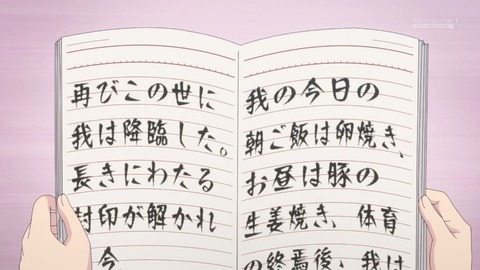 再びこの世に
我は降臨した。
長きにわたる
封印が解かれ
今、
我の今日の
朝ご飯は卵焼き、
お昼は豚の
生姜焼き、体育
の終焉後、我は